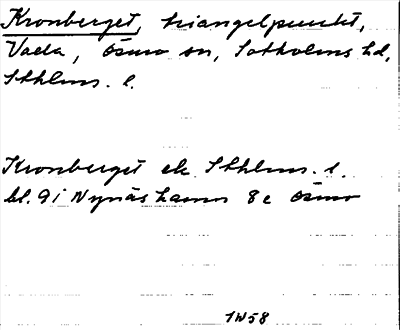 Kronberget, triangelpunkt,
Vaela, Ösmo sn, Sotholms hd,
Sthlms. l.
Kronberget ek Sthlms. l.
bl. 9i Nynäshamn 8c Ösmo
IW58